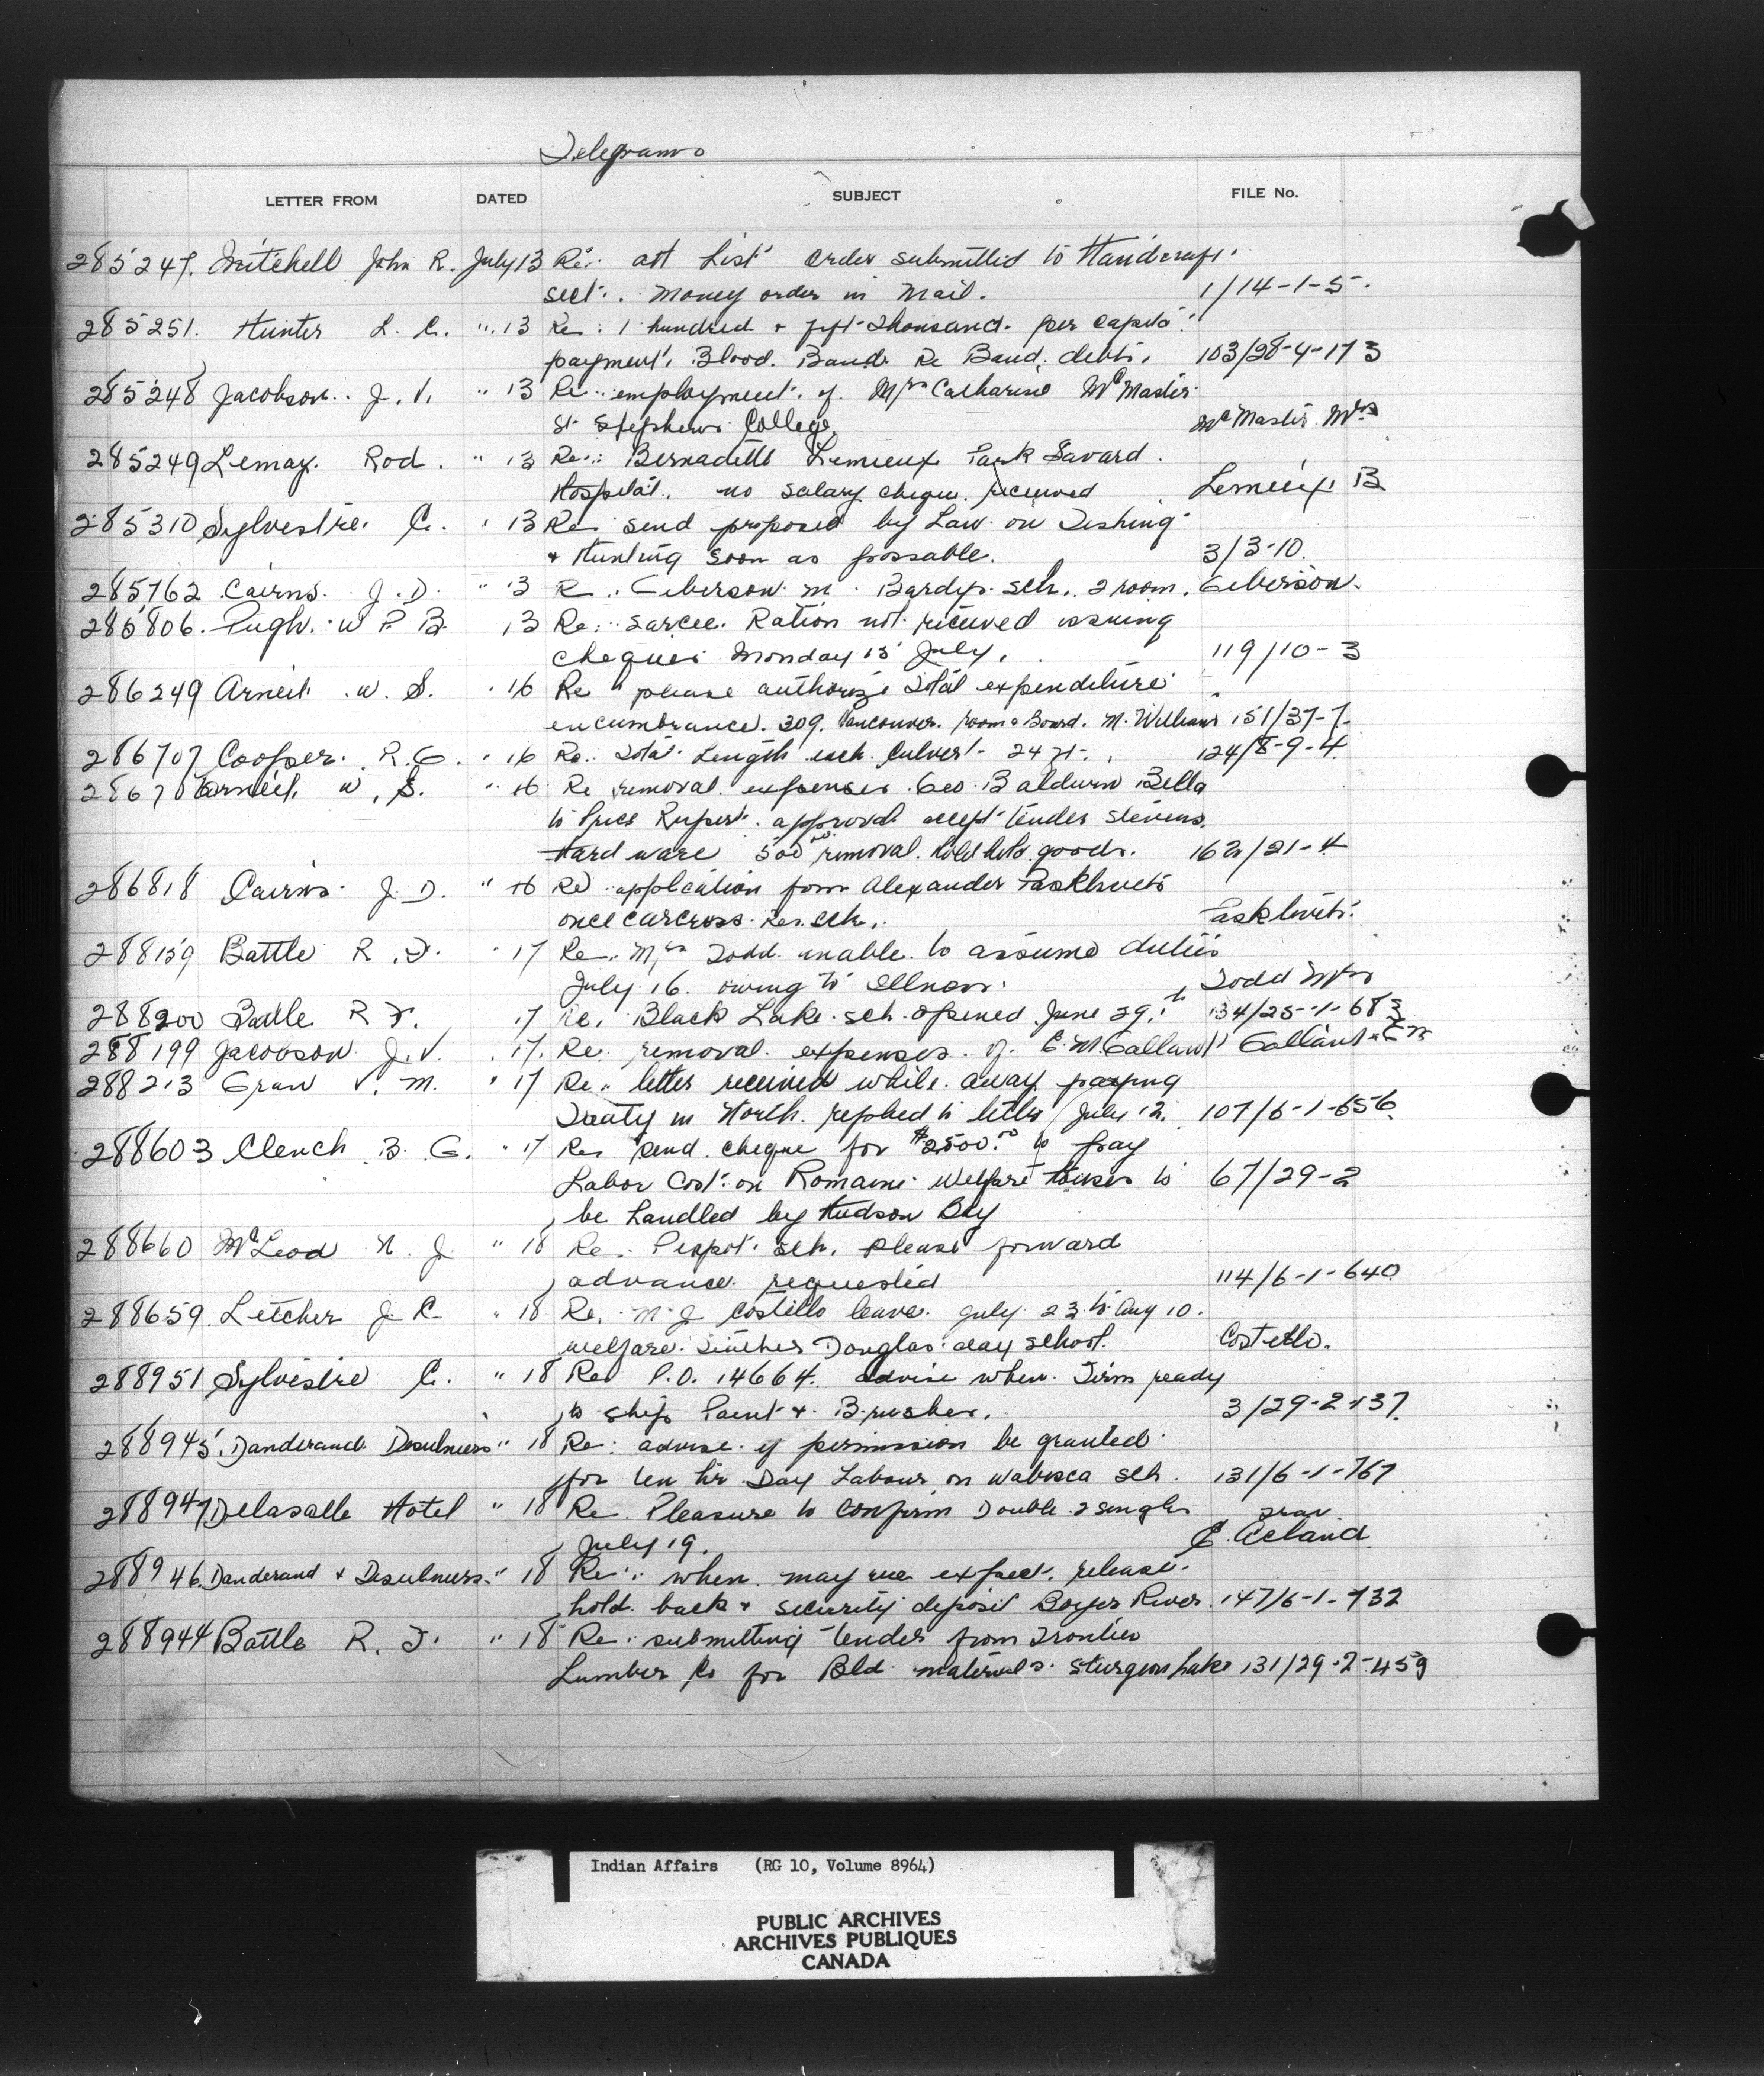 Telegrams
LETTER FROM DATED SUBJECT FILE No.
285247. Mitchell John R. July 13 Re: att List order submitted to Handicraft
sect. money order in mail. 1/14-1-5.
285251. Hunter L. C. " 13 Re: 1 hundred + fift thousand per capita
payment, Blood Band Re Band debts. 103/28-4-173
285248 Jacobson J. V. " 13 Re: employment of Mrs Catharine McMaster
St Stephens College. McMaster Mrs
285249 Lemay Rod. " 13 Re: Bernadette Lemieux Park Savard.
Hospital, no salary cheque received Lemieux B
285310 Sylvestre C. " 13 Re send proposed by Law on Fishing
+ Hunting soon as possable. 3/3-10.
285762 Cairns J. D. " 13 R. Geberson M. sch. 2 room. Geberson.
285806. Pugh W P B 13 Re: Sarcee Ration not received issuing
cheques Monday 15 July. 119/10-3
286249 Arneil W. S. " 16 Re please authorize total expenditure
encumbrance. 309. Vancouver. room & Board. M. Williams 151/37-7-
286707 Cooper R. G. " 16 Re. total Length each Culvert 24 ft. 124/8-9-4
28670 Arneil W. S. " 16 Re removal expenses Geo Baldwin Bella
to Prince Rupert. approval accept tender Stevens
Hardware 500 removal. hold goods. 162/21-4
286818 Cairns J. D. " 16 Re application from Alexander
once carcross Res. sch.
288159 Battle R. F. " 17 Re. Mrs Todd unable to assume duties
July 16 owing to illness. Todd Mrs
288200 Battle R F. 17 Re. Black Lake sch opened June 29th 134/25-1-683
288199 Jacobson J. V. " 17. Re. removal expenses of E. M. Gallant Gallant E M
288213 Gran V. M. " 17 Re. letter received while away paying
Treaty in North. replied to letter July 12. 107/6-1-656
288603 Clench B. G. " 17 Re send cheque for $2500.00 to pay
Labor Cost on Romaine Welfare Houses to 67/29-2
be handled by Hudson Bay
288660 McLeod N. J. " 18 Re. Peapot sch. please forward
advance requested 114/6-1-640
288659. Letcher J. R. " 18 Re. M. J Costello leave July 23 to Aug 10.
welfare teacher Douglas day school. Costello.
288951 Sylvestre C. " 18 Re P.O. 14664. advise when Firm ready
to ship Paint + Brushes. 3/29-2-137.
288945. Danderand Desulniers " 18 Re: advise if permission be granted
for ten hr Day Labour on Wabasca sch. 131/6-1-767
288947 Delasalle Hotel " 18 Re. Pleasure to confirm Double 2 singles
July 19. C. Acland
288946. Danderand + Desulniers " 18 Re: when may we expect release
hold back + security deposit Boyer River. 147/6-1-732
288944 Battle R. F. " 18 Re: submitting tender from Frontier
Lumber Co for Bld materials Sturgeon Lake 131/29-2-459
Indian Affairs (RG 10, Volume 8964)
PUBLIC ARCHIVES
ARCHIVES PUBLIQUES
CANADA